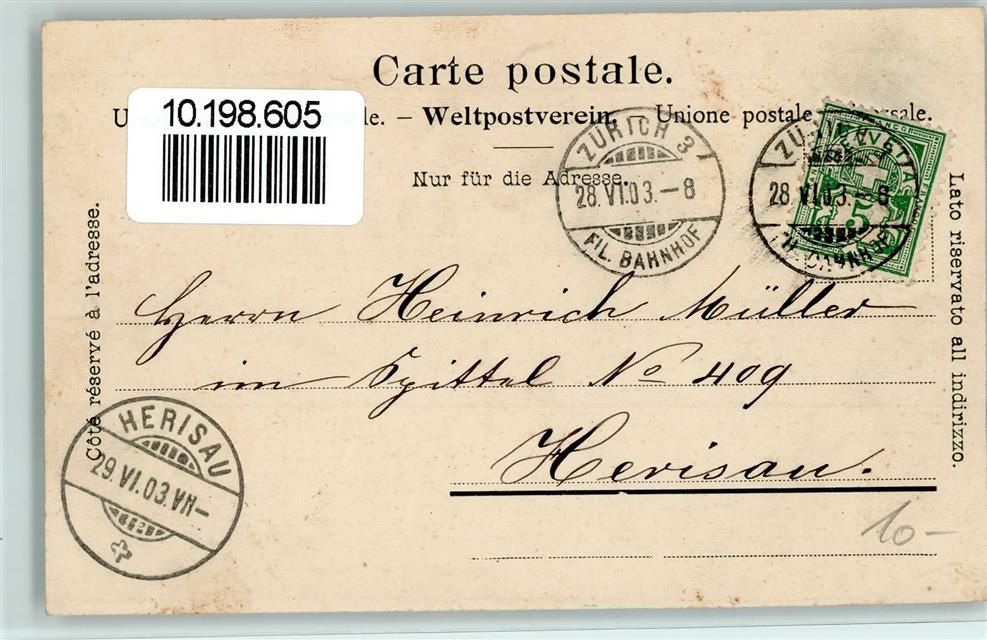 Carte postale.
10.198.605
U le. – Weltpostverein. Unione postale sale.
Nur für die Adresse.
ZÜRICH 3
28.VI.03.–8
FIL. BAHNHOF
ZÜ
28.VI.03.–8
HELVETIA
5
Côté réservé à l'adresse.
Lato riservato all indirizzo.
Herrn Heinrich Müller
im Spittel No 409
Herisau.
HERISAU
29.VI.03.VII–
10–